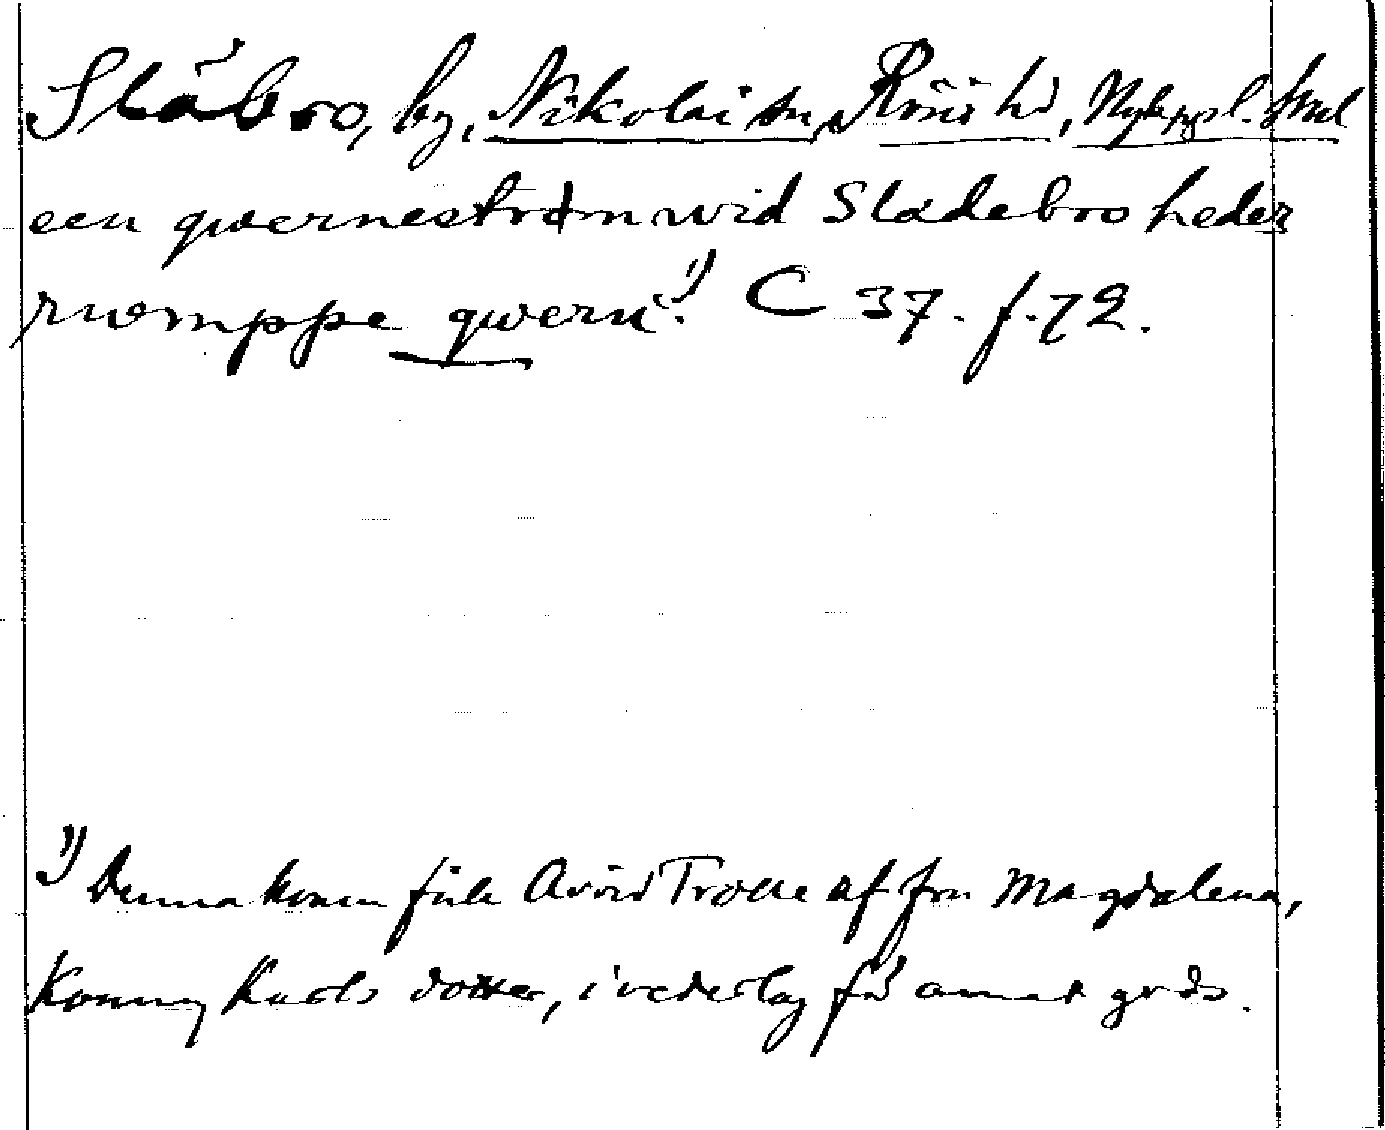 Släbro, by, Nikolai sn, Rönö hd, Nyköpgs l. Sml
een qwernestrøm wid Sladebro heder
rwmppe qwern. 1) C 37. f. 72.
1) Denna kvarn fick Arvid Trolle af fru Magdalena,
Konung Karls dotter, i vederlag för annat gods.